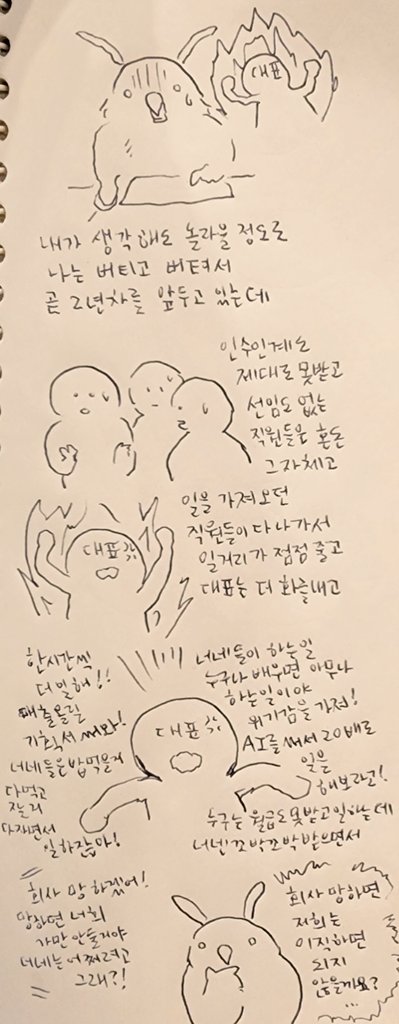 대표
내가 생각해도 놀라울 정도로
나는 버티고 버텨서
곧 2년차를 앞두고 있는데
인수인계도
제대로 못받고
선임도 없는
직원들은 혼돈
그자체고
일을 가져오던
직원들이 다 나가서
일거리가 점점 줄고
대표는 더 화를내고
대표
한시간씩
더 일해!!
매출올릴
기획서 써와!
너네들은 밥먹을거
다먹고
잘거
다자면서
일하잖아!
너네들이 하는일
누구나 배우면 아무나
하는일이야
위기감을 가져!
AI를 써서 20배로
일을
해보라고!
누구는 월급도 못받고 일하는데
너넨 꼬박꼬박 받으면서
대표
회사 망하겠어!
망하면 너희
가만 안둘거야
너네는 어쩌려고
그래?!
회사 망하면
저희는
이직하면
되지
않을까요?
...